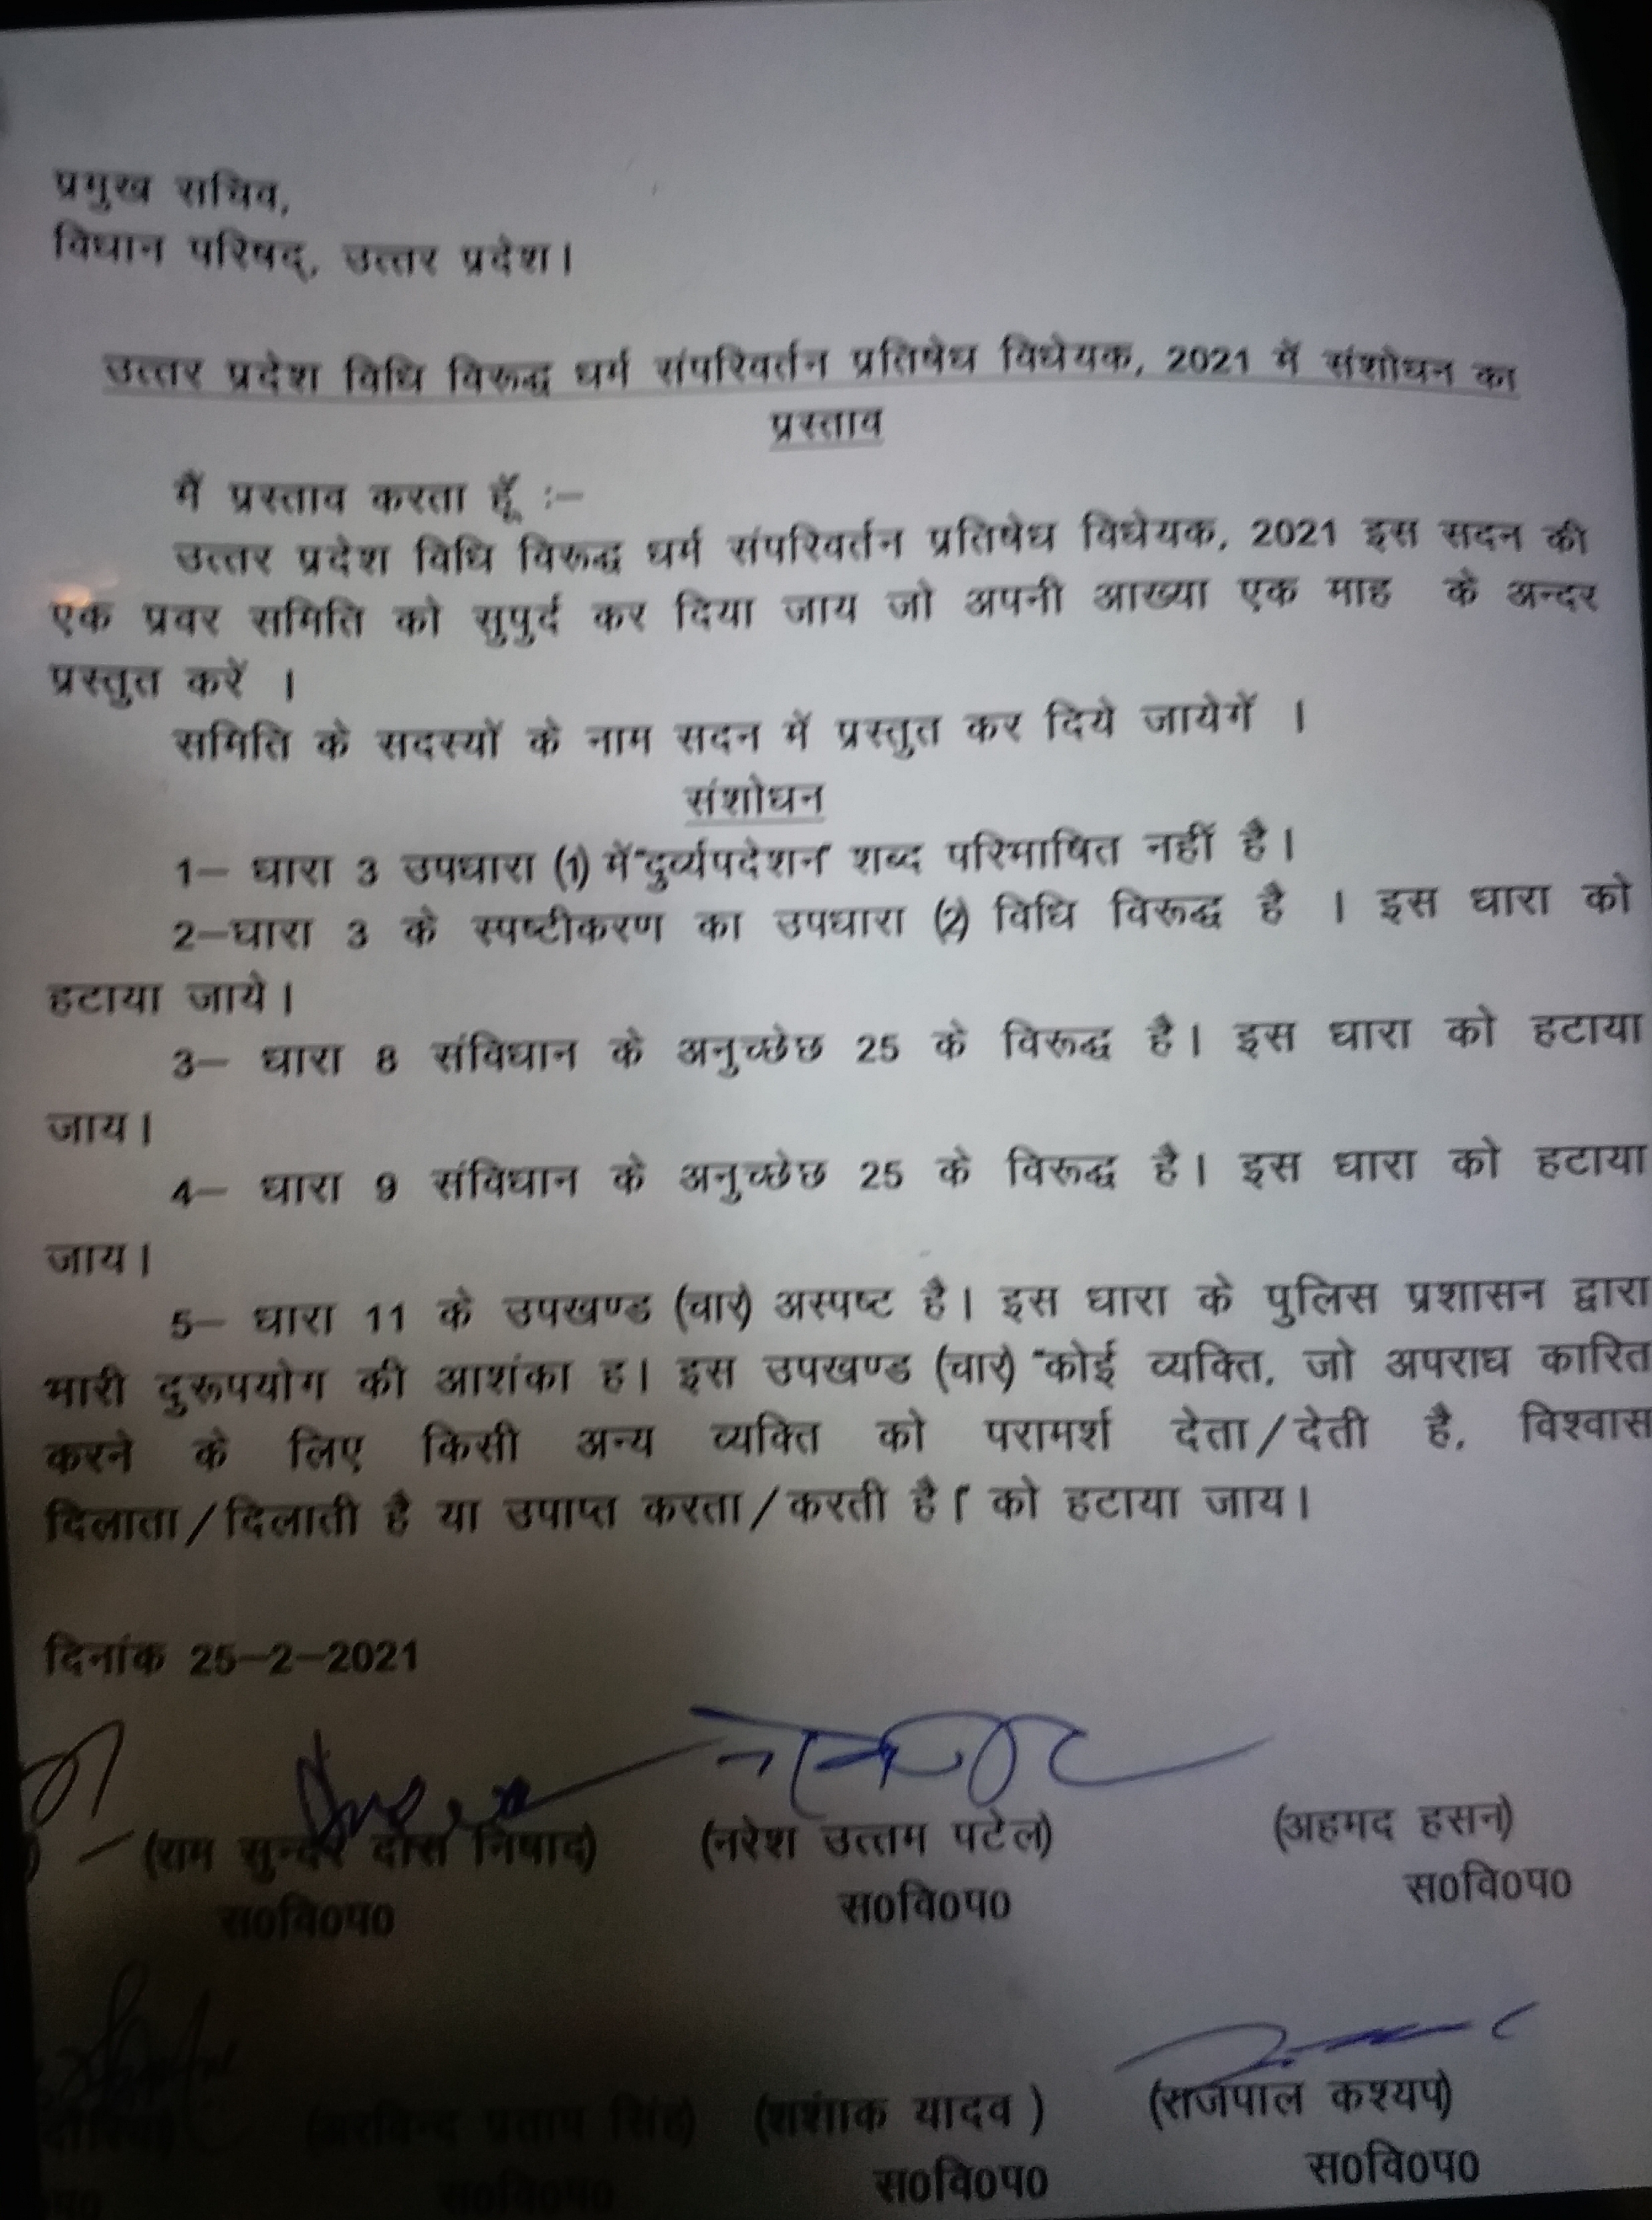 प्रमुख सचिव,
विधान परिषद्, उत्तर प्रदेश।
उत्तर प्रदेश विधि विरूद्ध धर्म संपरिवर्तन प्रतिषेध विधेयक, 2021 में संशोधन का
प्रस्ताव
मैं प्रस्ताव करता हूँ :–
उत्तर प्रदेश विधि विरूद्ध धर्म संपरिवर्तन प्रतिषेध विधेयक, 2021 इस सदन की
एक प्रवर समिति को सुपुर्द कर दिया जाय जो अपनी आख्या एक माह के अन्दर
प्रस्तुत करें ।
समिति के सदस्यों के नाम सदन में प्रस्तुत कर दिये जायेगें ।
संशोधन
1– धारा 3 उपधारा (1) में "दुर्व्यपदेशन" शब्द परिभाषित नहीं है।
2–धारा 3 के स्पष्टीकरण का उपधारा (2) विधि विरूद्ध है । इस धारा को
हटाया जाये।
3– धारा 8 संविधान के अनुच्छेछ 25 के विरूद्ध है। इस धारा को हटाया
जाय।
4– धारा 9 संविधान के अनुच्छेछ 25 के विरूद्ध है। इस धारा को हटाया
जाय।
5– धारा 11 के उपखण्ड (चार) अस्पष्ट है। इस धारा के पुलिस प्रशासन द्वारा
भारी दुरूपयोग की आशंका ह। इस उपखण्ड (चार) "कोई व्यक्ति, जो अपराध कारित
करने के लिए किसी अन्य व्यक्ति को परामर्श देता/देती है, विश्वास
दिलाता/दिलाती है या उपाप्त करता/करती है।" को हटाया जाय।
दिनांक 25–2–2021
(राम सुन्दर दास निषाद) (नरेश उत्तम पटेल) (अहमद हसन)
स0वि0प0 स0वि0प0 स0वि0प0
(अरविन्द प्रताप सिंह) (शशांक यादव ) (राजपाल कश्यप)
स0वि0प0 स0वि0प0 स0वि0प0